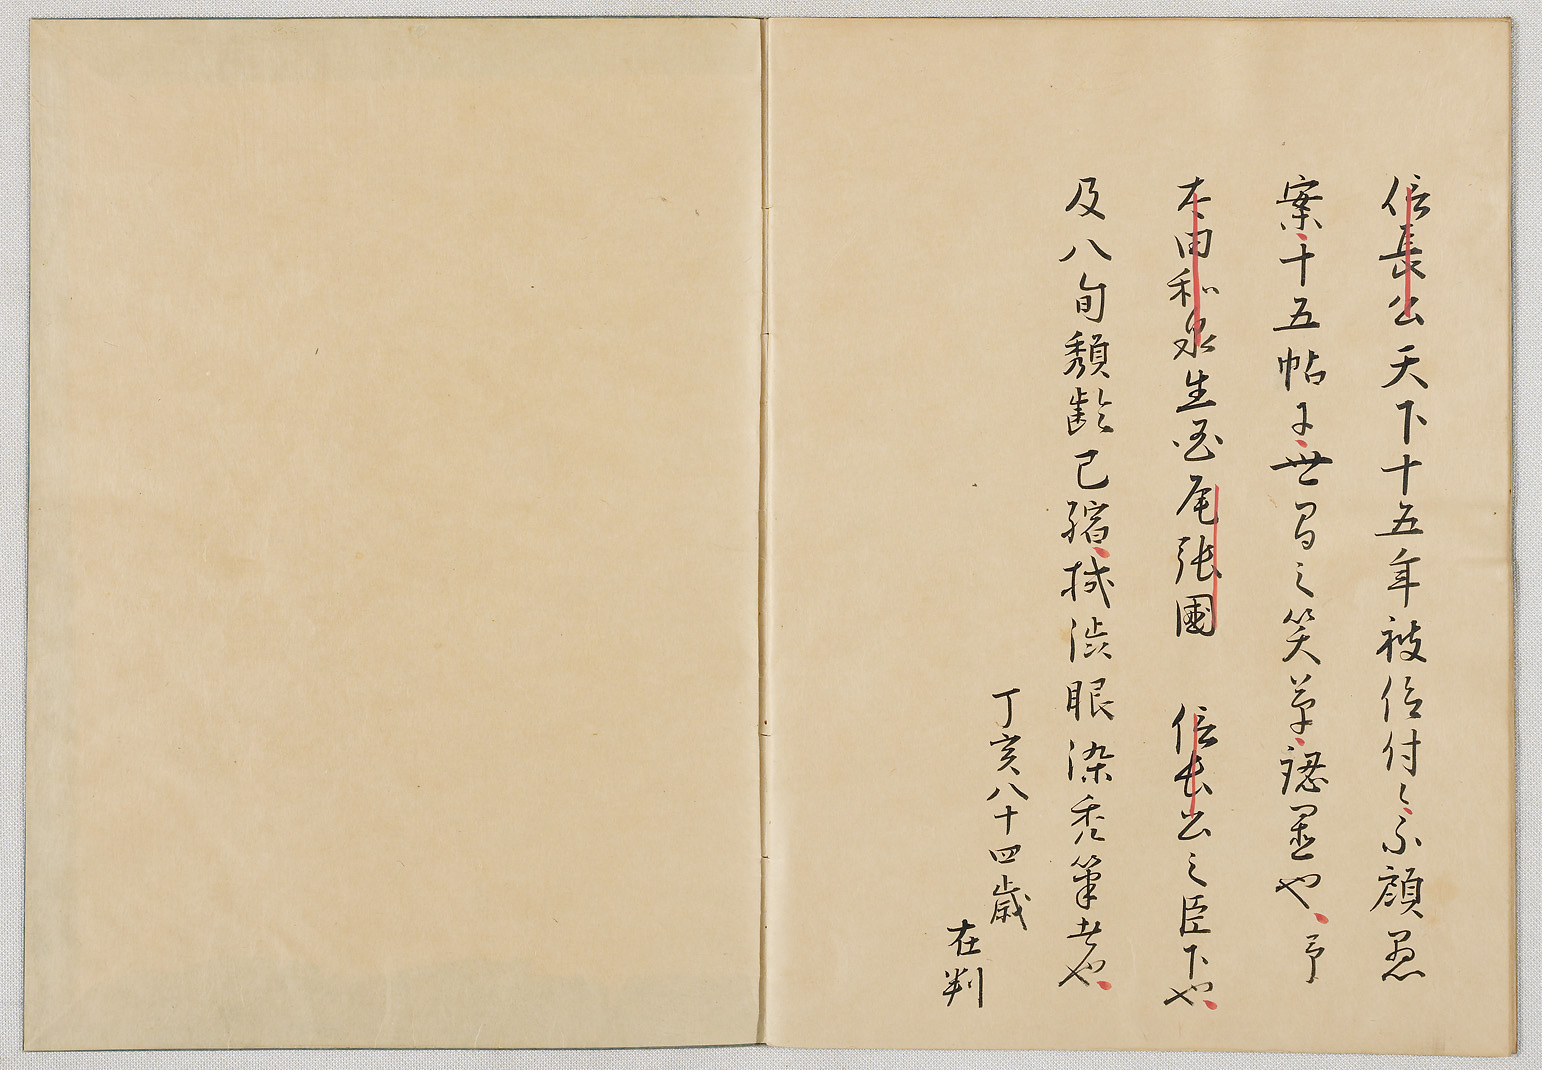 信長公天下十五年被仰付候不顧愚
案十五帖于世間之笑草認置也予
太田和泉生国尾張國　信長公之臣下也
及八旬頽齢已縮拭渋眼染禿筆者也
丁亥八十四歳
在判